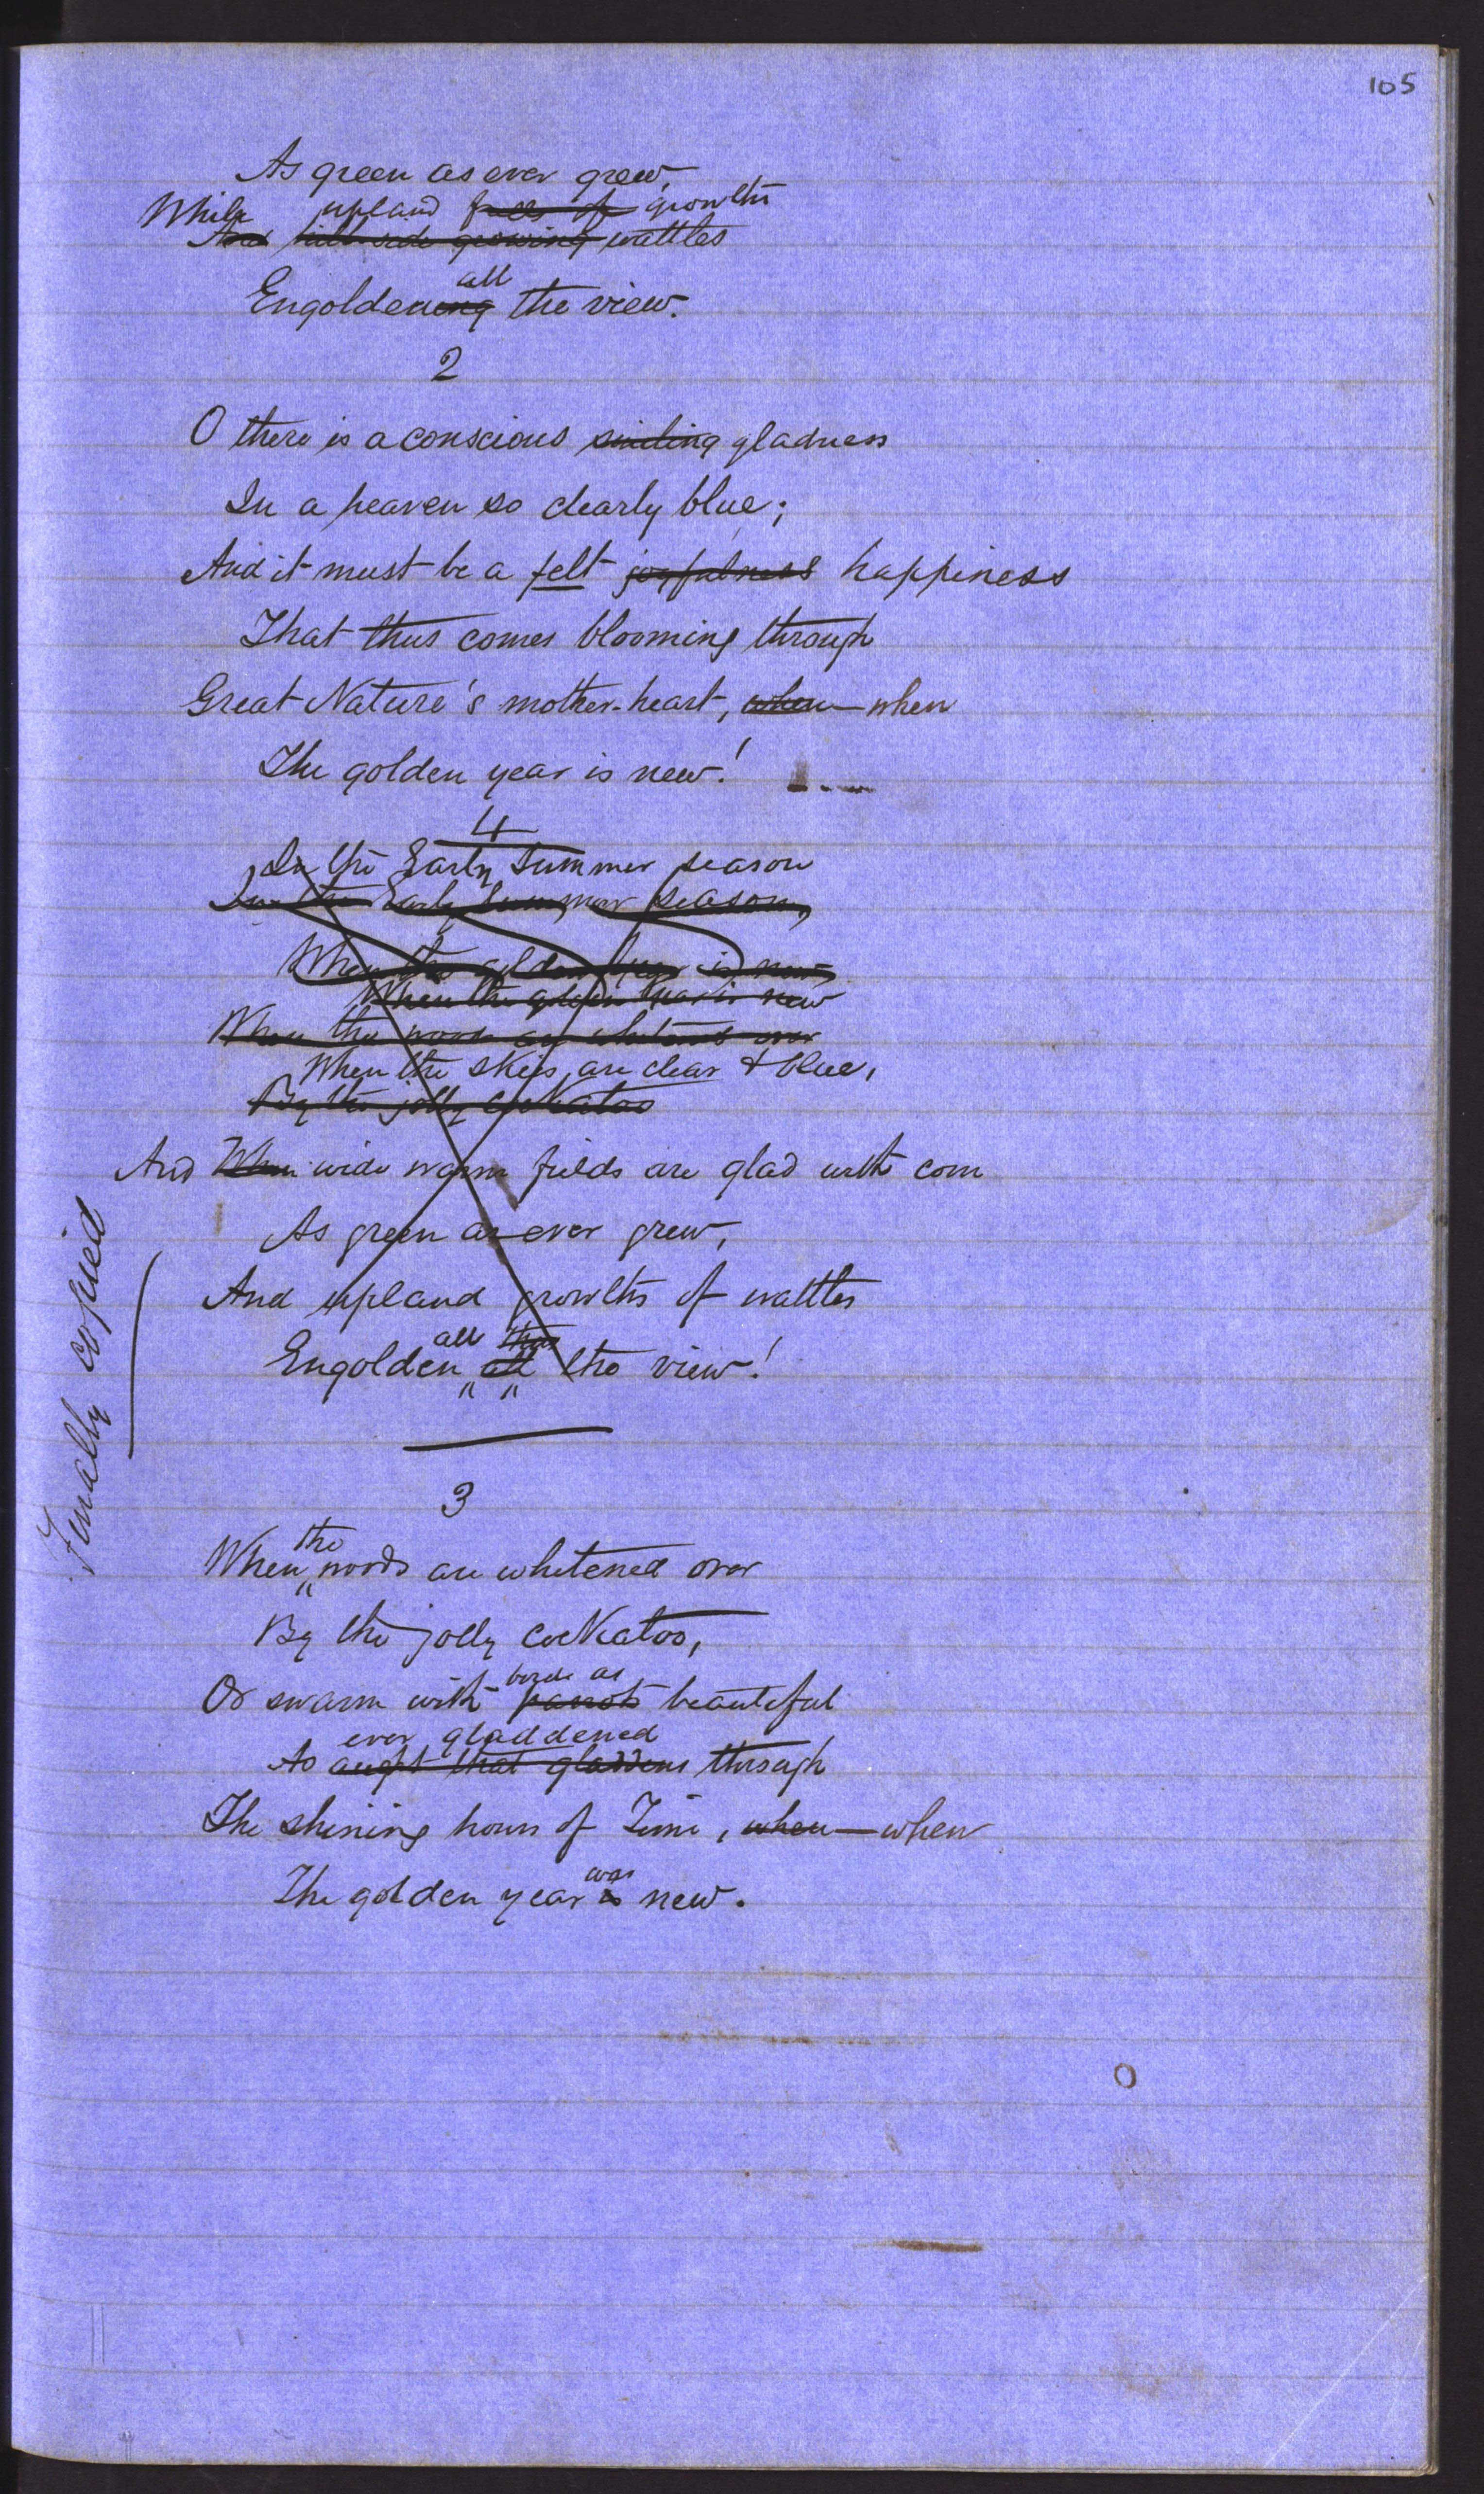 105
As green as ever grew,
While upland growths
And hill-side growing wattles
all
Engoldening the view.
2
O there is a conscious smiling gladness
In a heaven so clearly blue;
And it must be a felt joyfulness happiness
That thus comes blooming through
Great Nature's mother-heart, when—when
The golden year is new!
4
In the Early Summer season
In the Early Summer season,
When the golden year is new,
When the golden year is new
When the woods are whitened over
When the skies are clear & blue,
By the jolly cockatoo
And When wide warm fields are glad with corn
As green as ever grew,
And upland growths of wattles
all thus
Engolden all the view!
Finally copied
3
the
When woods are whitened over
By the jolly cockatoo,
birds as
Or swarm with parrots beautiful
ever gladdened
As aught that gladdens through
The shining hours of Time, when—when
was
The golden year is new.